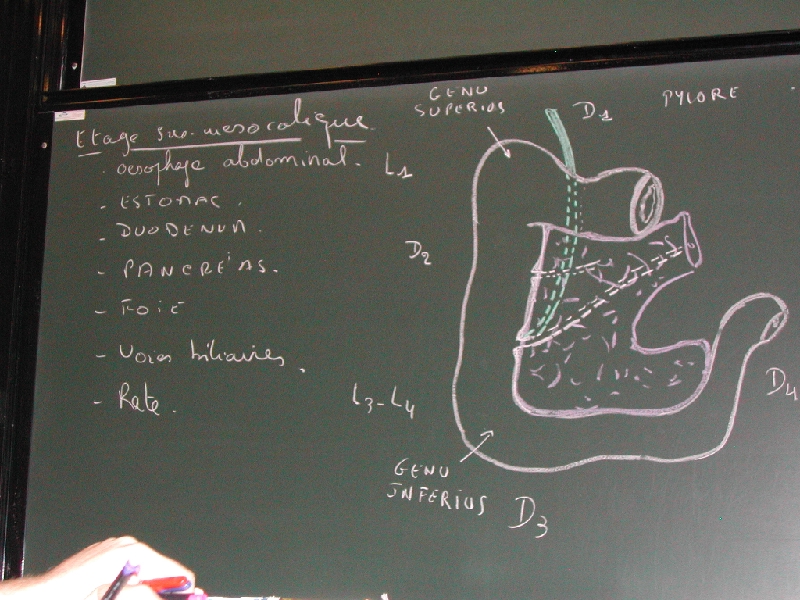 Etage sus-mesocolique
. oesophage abdominal.
- ESTOMAC.
- DUODENUM.
- PANCRÉAS.
- FOIE
- Voies biliaires.
- Rate.
GENU
SUPERIUS
D1
PYLORE
L1
D2
L3-L4
D4
GENU
INFERIUS
D3